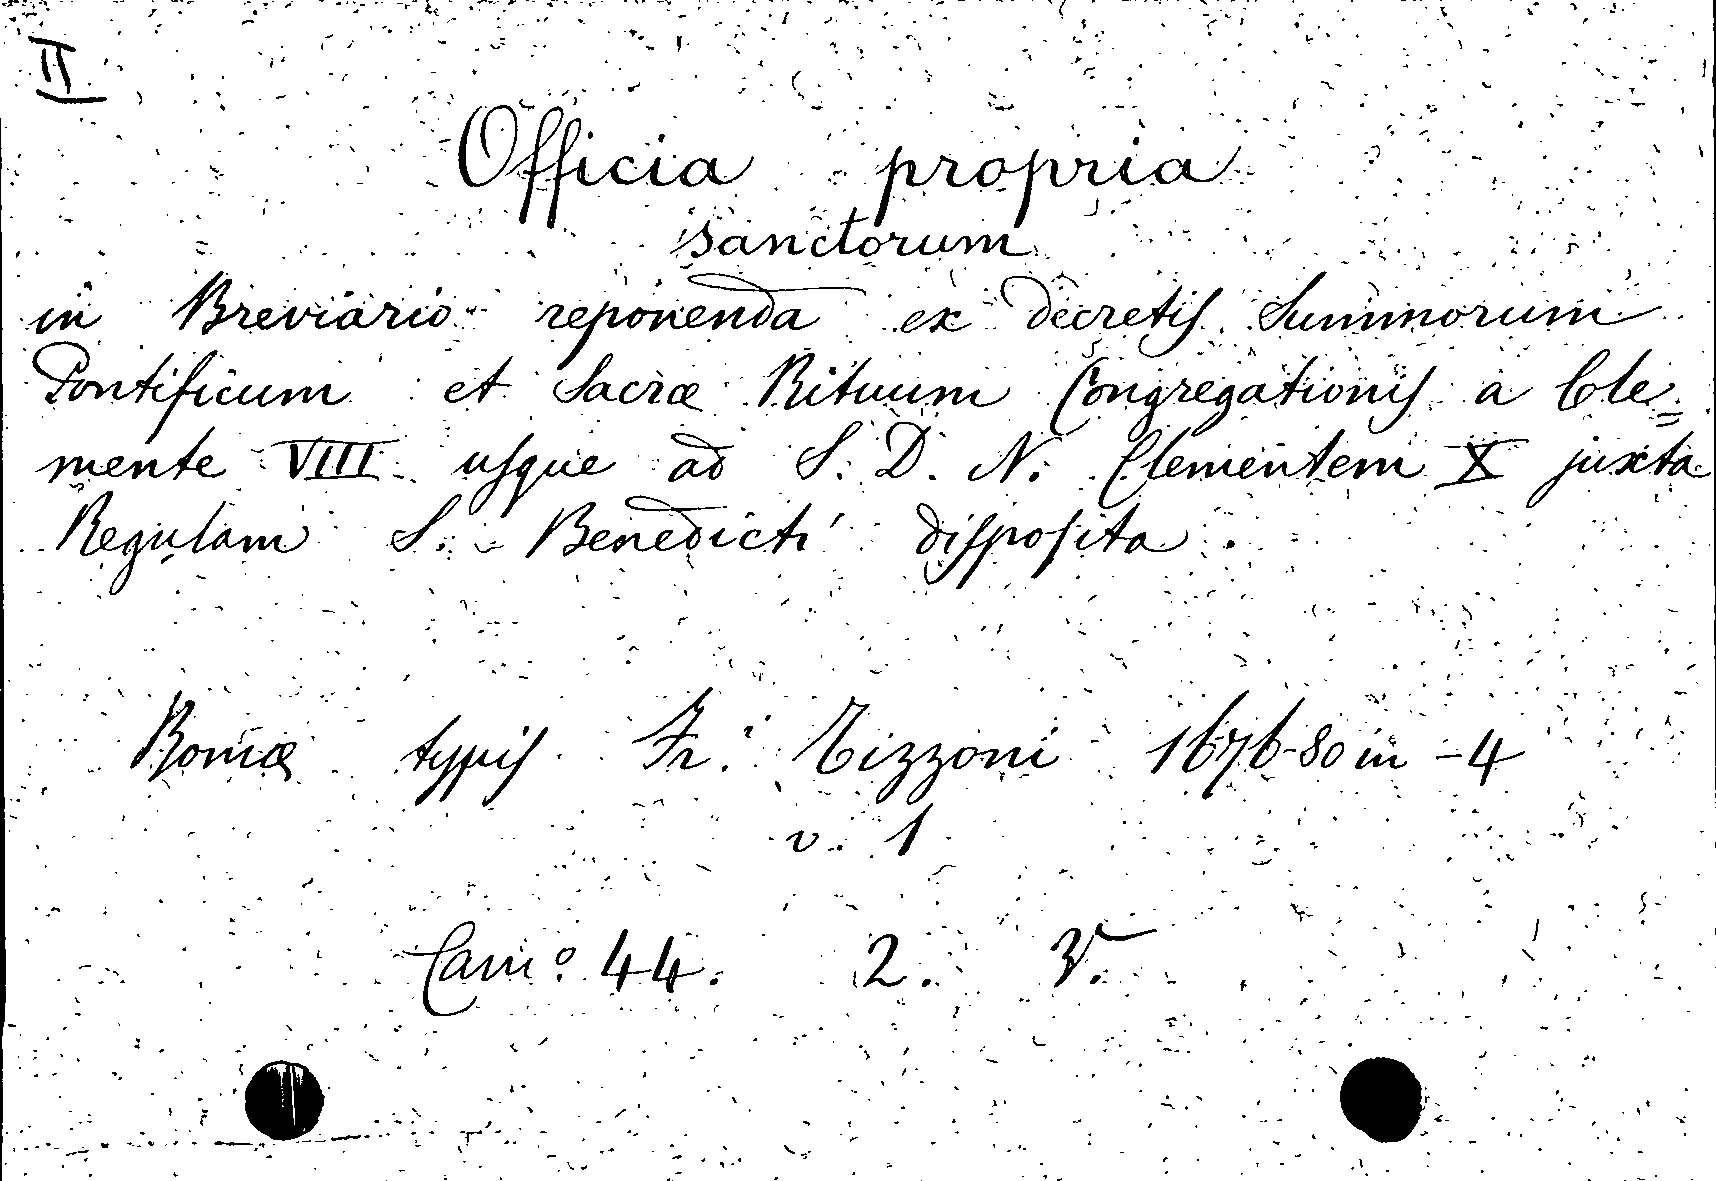 II
Officia propria
sanctorum
in Breviario reponenda ex decretiſ Summorum
Pontificum et Sacræ Rituum Congregationiſ a Cle=
mente VIII uſque ad S. D. N. Clementem X juxta
Regulam S. Benedicti diſpoſita.
Romæ typiſ Fr. Tizzoni 1676-80 in -4
v. 1
Camo 44. 2. V.